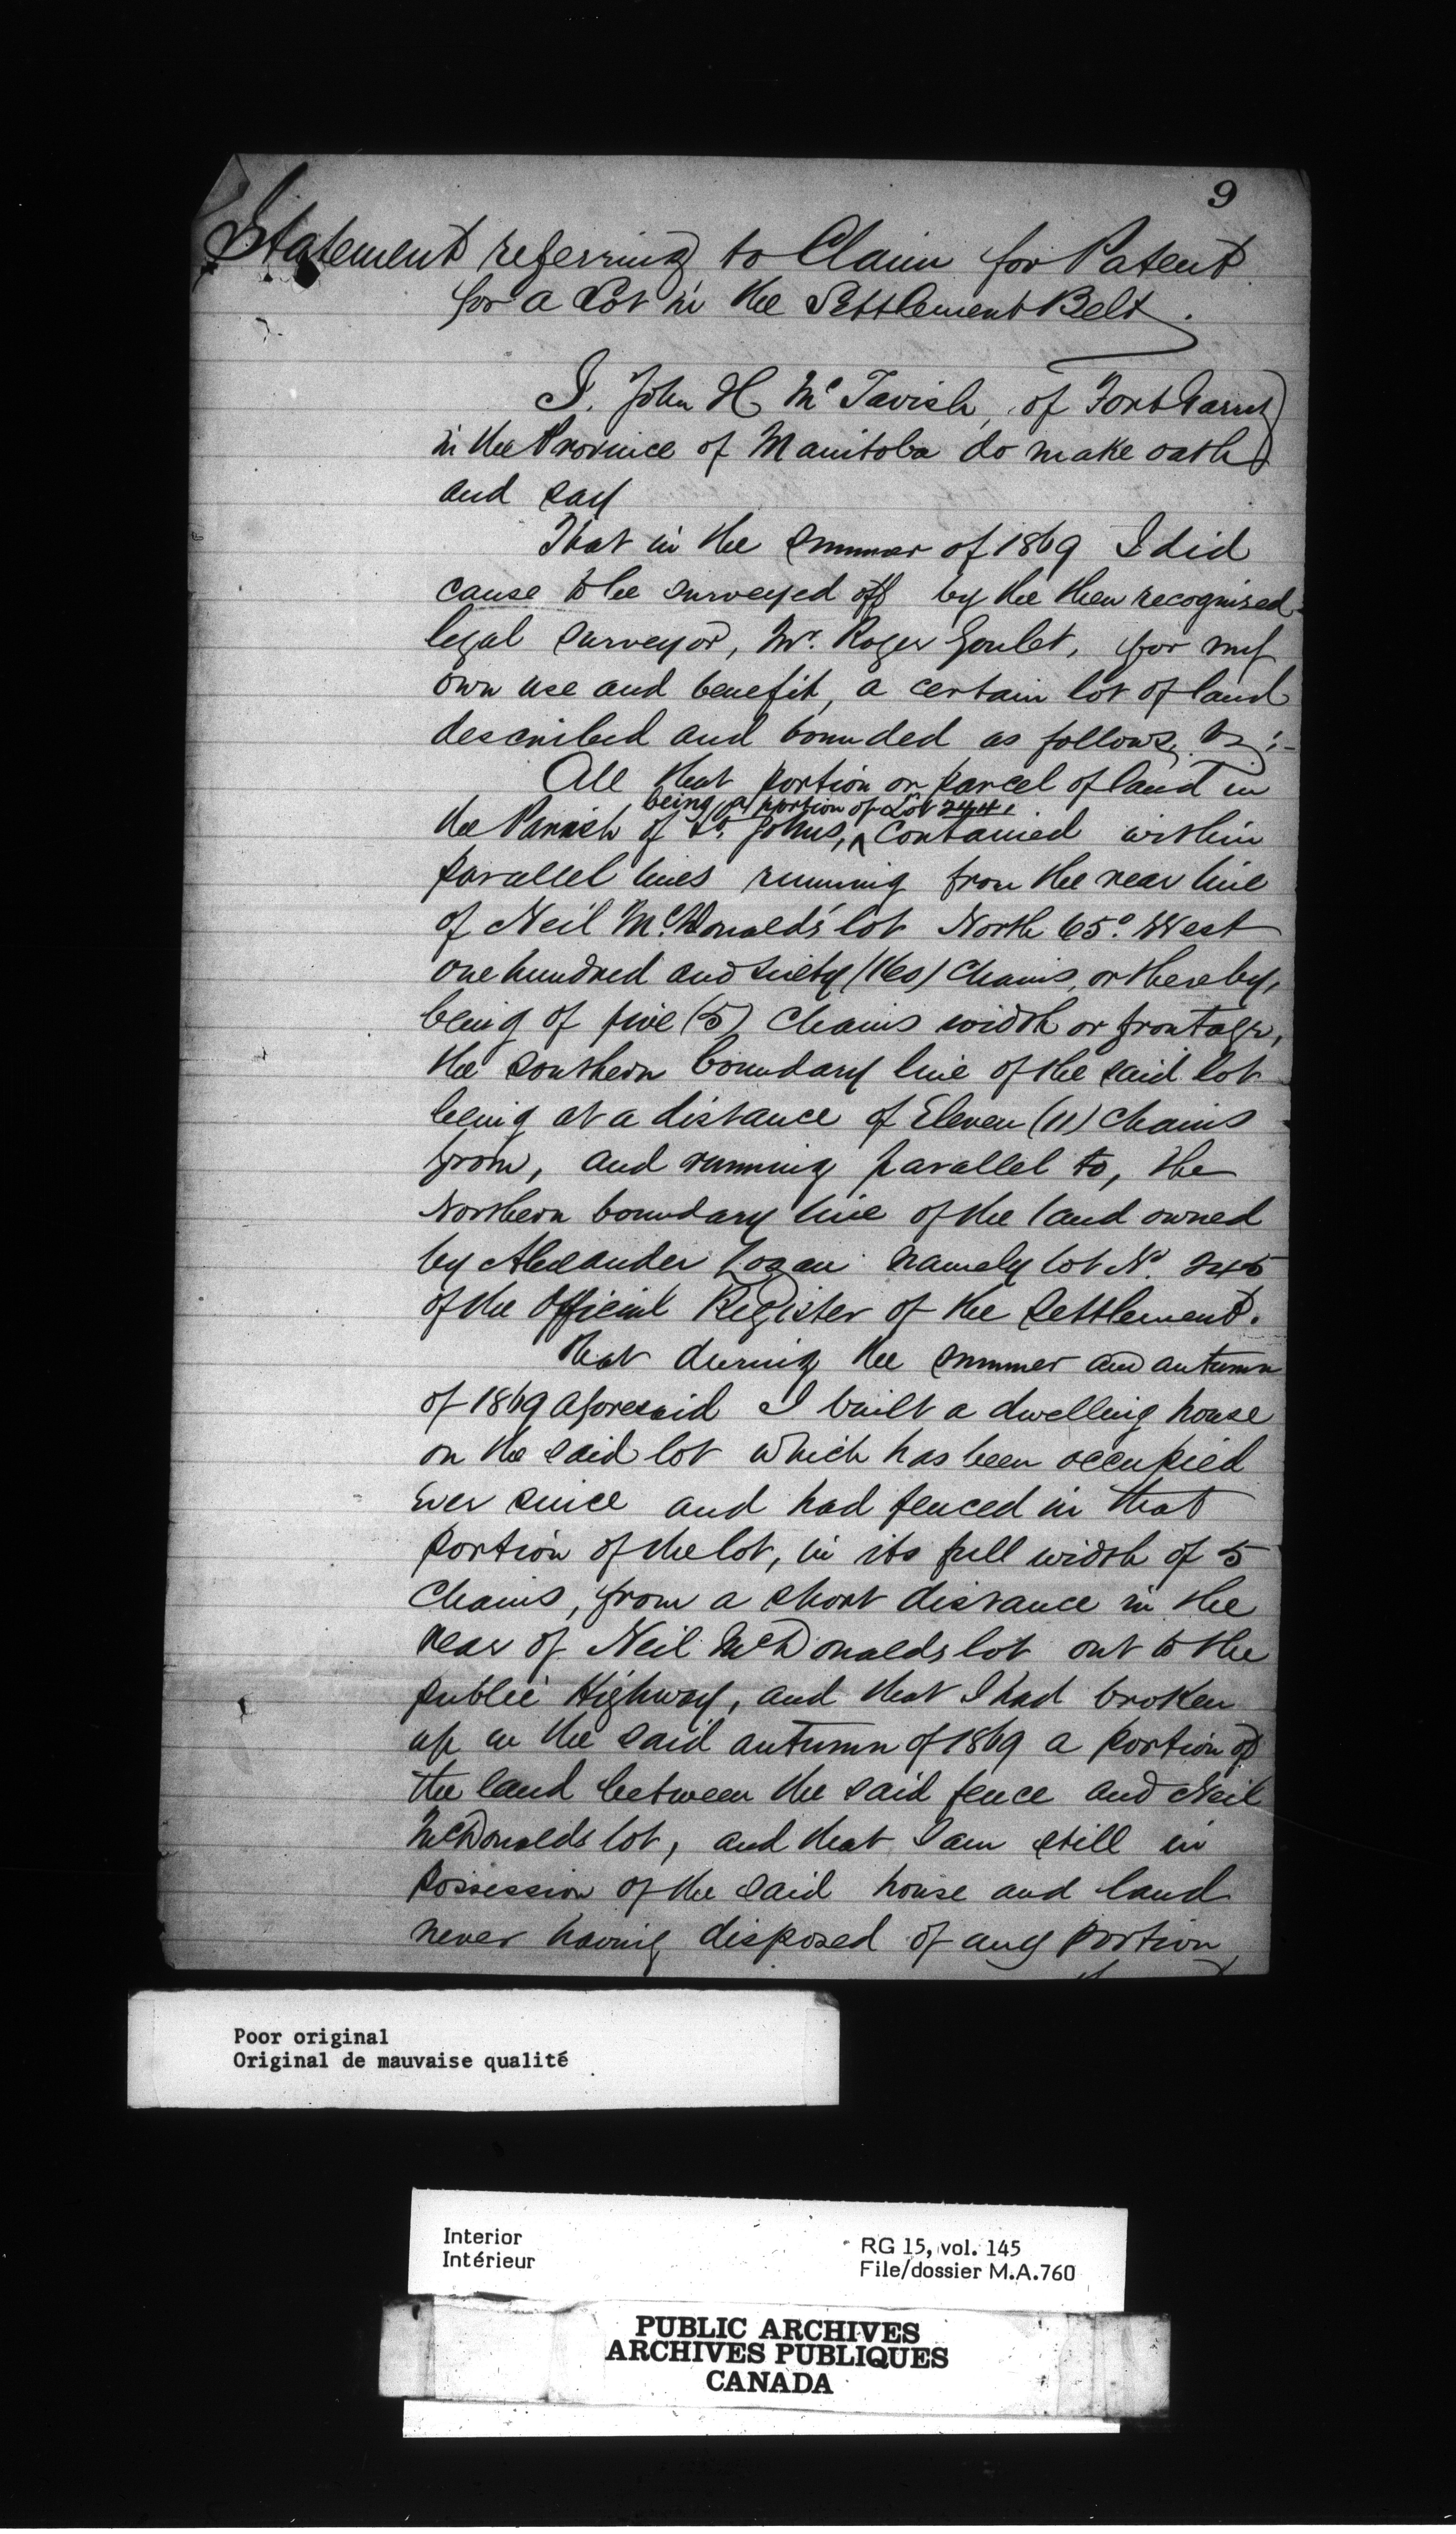 9
Statement referring to Claim for Patent
for a Lot in the Settlement Belt.
I. John H McTavish, of Fort Garry
in the Province of Manitoba do make oath
and say
That in the summer of 1869 I did
cause to be surveyed off by the then recognised
legal surveyor, Mr. Roger Goulet, for my
own use and benefit, a certain lot of land
described and bounded as follows, viz:-
All that portion or parcel of land in
being a portion of Lot 244,
the Parish of St. Johns, ^ contained within
parallel lines running from the rear line
of Neil McDonald's lot North 65°. West
one hundred and sixty (160) Chains, or thereby,
being of five (5) Chains width or frontage,
the southern boundary line of the said lot
being at a distance of Eleven (11) Chains
from, and running parallel to, the
Northern boundary line of the land owned
by Alexander Logan namely lot No. 245
of the Official Register of the Settlement.
That during the summer and autumn
of 1869 aforesaid I built a dwelling house
on the said lot which has been occupied
ever since and had fenced in that
portion of the lot, in its full width of 5
Chains, from a short distance in the
rear of Neil McDonalds lot out to the
public Highway, and that I had broken
up in the said autumn of 1869 a portion of
the land between the said fence and Neil
McDonalds lot, and that I am still in
possession of the said house and land
never having disposed of any portion
Poor original
Original de mauvaise qualité
Interior
Intérieur
RG 15, vol. 145
File/dossier M.A.760
PUBLIC ARCHIVES
ARCHIVES PUBLIQUES
CANADA